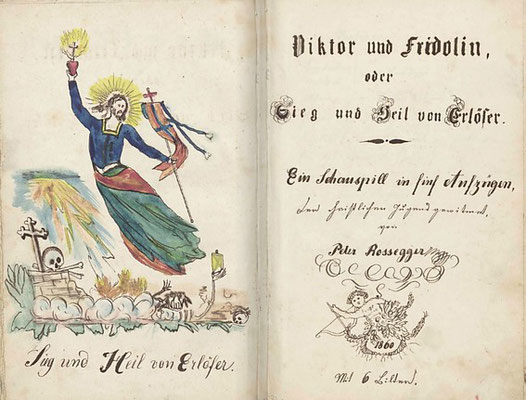 Sieg und Heil von Erlöser.
Viktor und Fridolin,
oder
Sieg und Heil von Erlöser.
Ein Schauspill in fünf Aufzügen,
der christlichen Jugend gewidmet,
von
Peter Rossegger
1860
Mit 6 Bilten.